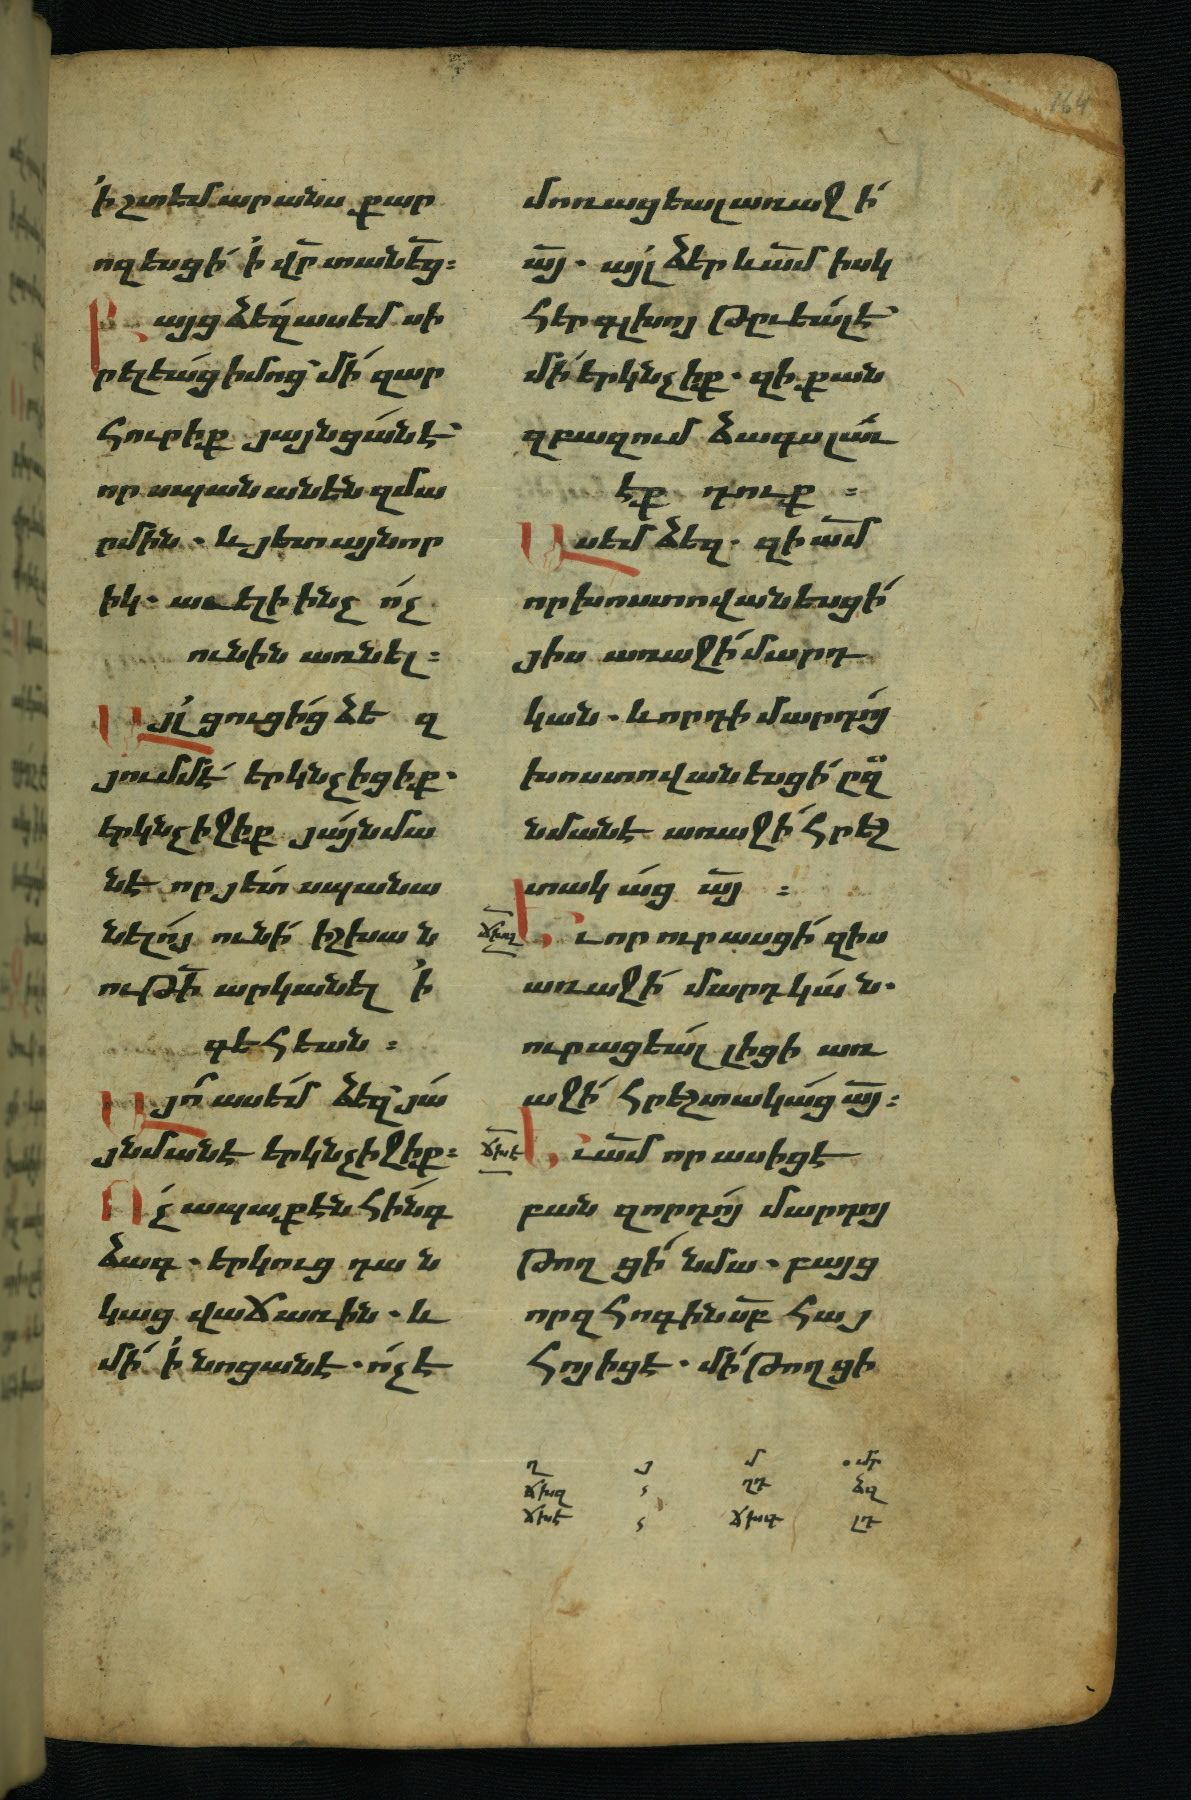 164
ի շտեմարանս քար
ոզեսցի ի վր տանեց։
Բայց ձեզ ասեմ սի
րելեաց իմոց՝ մի զար
հուրիք յայնցանէ՝
որ սպանանեն զմա
րմին․ և յետ այնոր
իկ․ աւելի ինչ ոչ
ունին առնել։
Այլ ցուցից ձեզ
յումմէ երկնչիցիք․
երկնչիջիք յայնմա
նէ որ յետ սպանա
նելոյ ունի իշխան
ութի արկանել ի
գեհեան։
Այո ասեմ ձեզ՝ յա
յնմանէ երկնչիջիք։
Ոչ ապաքէն հինգ
ձագ․ երկուց դան
կաց վաճառին․ և
մի ի նոցանէ․ ոչ է
մոռացեալ առաջի
այ․ այլ ձեր և ամ իսկ
հեր գլխոյ թըւեալ է՝
մի երկնչիք․ զի քան
զբազում ձագս լաւ
էք դուք։
Ասեմ ձեզ․ զի ամ
որ խոստովանեսցի
յիս առաջի մարդ
կան․ և որդի մարդոյ
խոստովանեսցի ընդ
նմանէ առաջի հրեշ
տակաց այ։
ճխզ
Եւ որ ուրասցի զիս
առաջի մարդկան․
ուրացեալ լիցի առ
աջի հրեշտակաց այ։
ճխէ
Եւ ամ որ ասիցէ
բան զորդոյ մարդոյ
թողցի նմա․ բայց
որ զհոգին սբ հայ
հոյիցէ․ մի թողցի
ղ յ մ մր
ճխզ ՙ ղդ ձզ
ճխէ ՙ ճխգ լդ